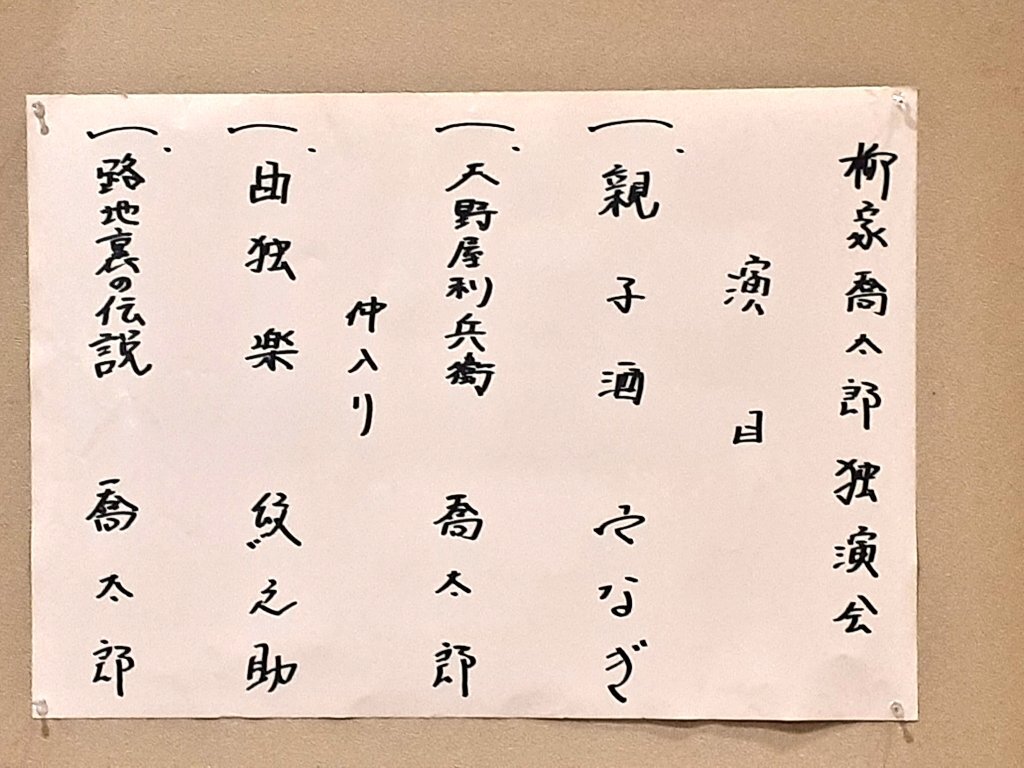 柳家喬太郎独演会
演目
一、親子酒 やなぎ
一、天野屋利兵衛 喬太郎
仲入り
一、曲独楽 紋之助
一、路地裏の伝説 喬太郎